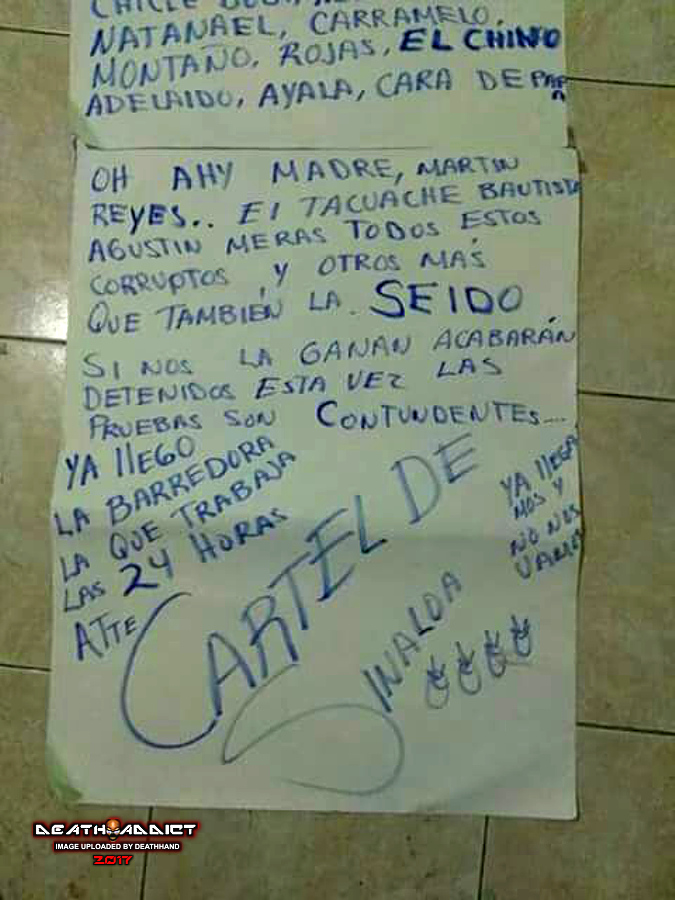 NATANAEL, CARRAMELO,
MONTAÑO, ROJAS, EL CHINO
ADELAIDO, AYALA, CARA DE PAPA
OH AHY MADRE, MARTIN
REYES.. El TACUACHE BAUTISTA
AGUSTIN MERAS TODOS ESTOS
CORRUPTOS, Y OTROS MAS
QUE TAMBIÉN LA. SEIDO.
SI NOS LA GANAN ACABARÁN
DETENIDOS ESTA VEZ LAS
PRUEBAS SON CONTUNDENTES....
YA llEGO
LA BARREDORA
LA QUE TRABAJA
LAS 24 HORAS
ATTE CARTEL DE
SINALOA
YA llEGA
MOS Y
NO NOS
VAMOS
DEATH ADDICT
IMAGE UPLOADED BY DEATHHAND
2017